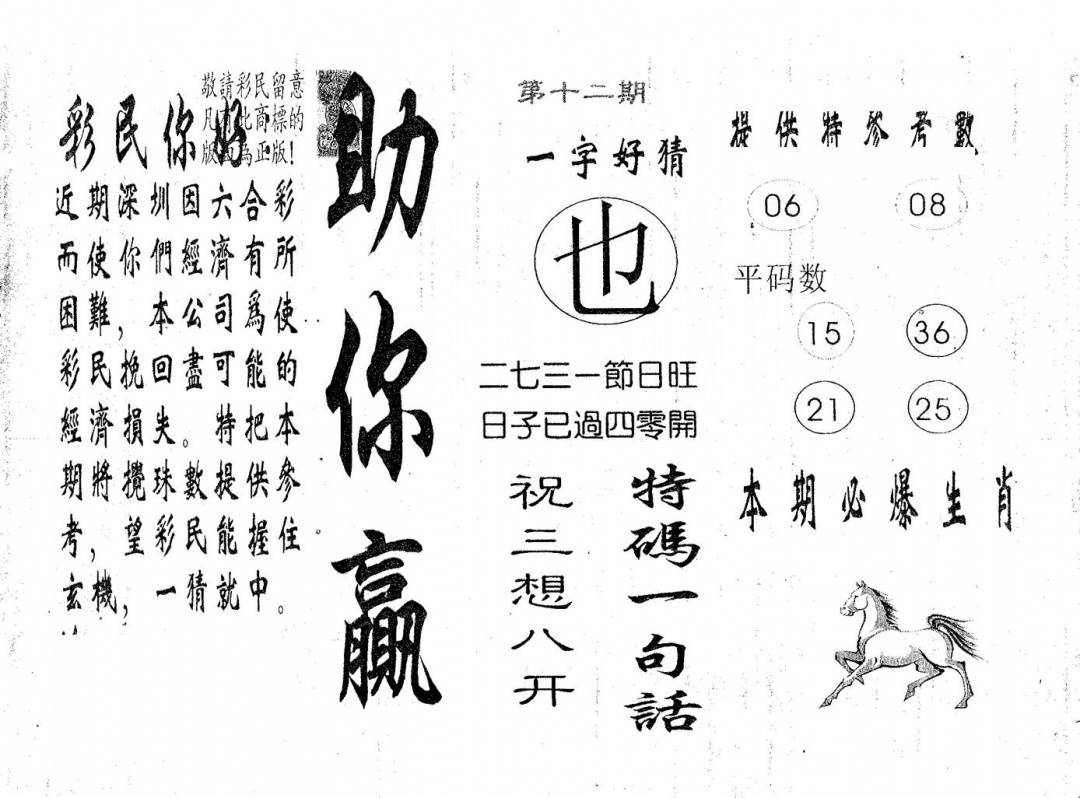 敬請彩民留意
凡有此商標的
版面為正版！
彩民你好
近期深圳因六合彩
而使你們經濟有所
困難，本公司爲使
彩民挽回盡可能的
經濟損失。特把本
期將攪珠數提供參
考，望彩民能握住
玄機，一猜就中。
助你贏
第十二期
一字好猜
也
二七三一節日旺
日子已過四零開
特碼一句話
祝三想八开
提供特參考數
06 08
平码数
15 36
21 25
本期必爆生肖